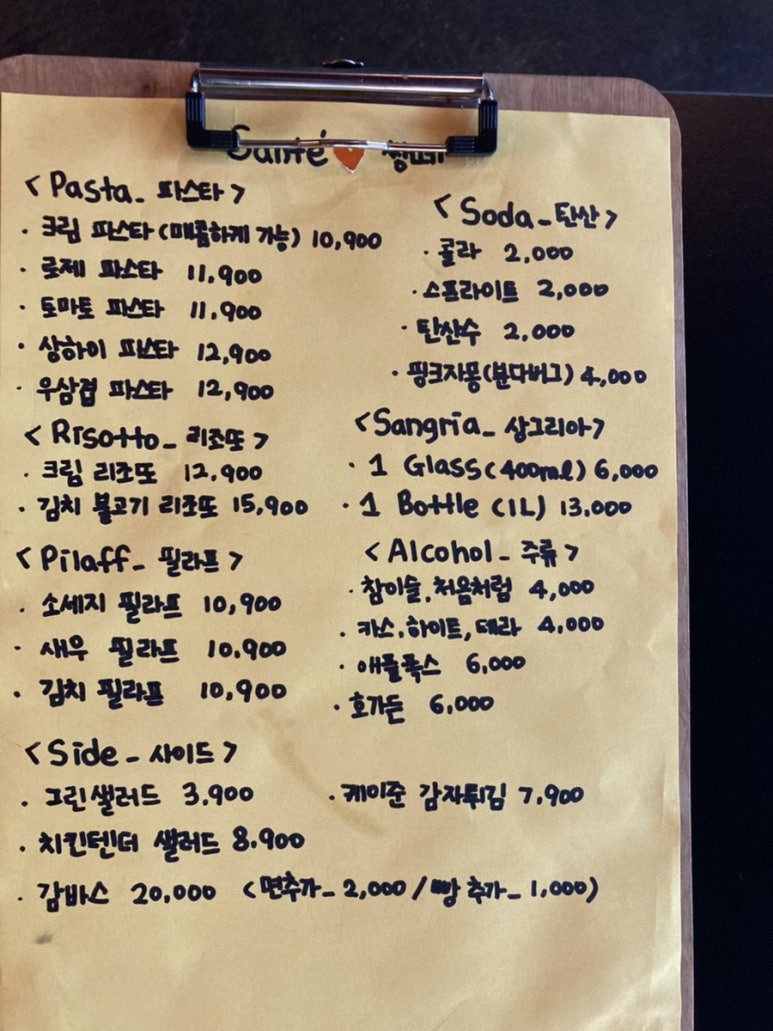 Santé 쌍떼
< Pasta_ 파스타 >
· 크림 파스타 (매콤하게 가능) 10,900
· 로제 파스타 11,900
· 토마토 파스타 11,900
· 상하이 파스타 12,900
· 우삼겹 파스타 12,900
< Risotto_ 리조또 >
· 크림 리조또 12,900
· 김치 불고기 리조또 15,900
< Pilaff_ 필라프 >
· 소세지 필라프 10,900
· 새우 필라프 10,900
· 김치 필라프 10,900
< Side_ 사이드 >
· 그린샐러드 3,900
· 치킨텐더 샐러드 8,900
· 감바스 20,000 < 면추가_ 2,000 / 빵 추가_ 1,000 )
· 케이준 감자튀김 7,900
< Soda_탄산 >
· 콜라 2,000
· 스프라이트 2,000
· 탄산수 2,000
· 핑크자몽(분다버그) 4,000
<Sangria_ 샹그리아>
· 1 Glass (400ml) 6,000
· 1 Bottle (1L) 13,000
< Alcohol_ 주류 >
· 참이슬, 처음처럼 4,000
· 카스, 하이트, 테라 4,000
· 애플폭스 6,000
· 호가든 6,000